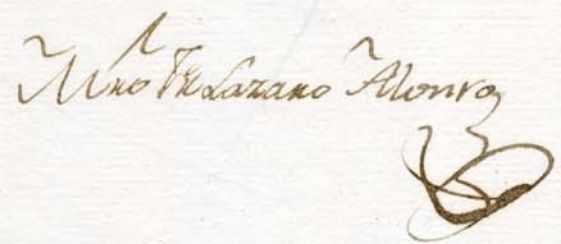 Mro Fr Lazaro Alonso